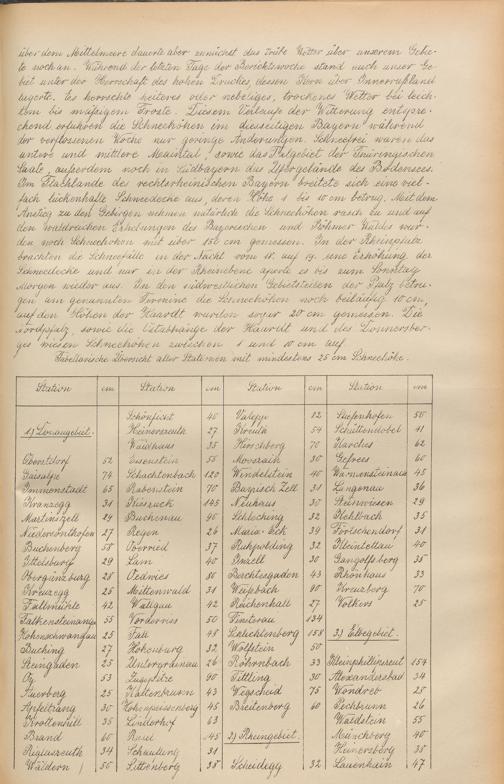 über dem Mittelmeere dauerte aber zunächst das trübe Wetter über unserem Gebie-
te noch an. Während der letzten Tage der Berichtswoche stand auch unser Ge-
biet unter der Herrschaft des hohen Druckes, dessen Kern über Innerrußland
lagerte. Es herrschte heiteres oder nebeliges, trockenes Wetter bei leich-
tem bis mäßigem Froste. Diesem Verlaufe der Witterung entspre-
chend erfuhren die Schneehöhen im diesseitigen Bayern während
der verflossenen Woche nur geringe Änderungen. Schneefrei waren das
untere und mittlere Maintal, sowie das Talgebiet der Thüringischen
Saale, außerdem noch in Südbayern das Ufergelände des Bodensees.
Am Flachlande des rechtsrheinischen Bayern breitete sich eine viel-
fach lückenhafte Schneedecke aus, deren Höhe 1 bis 10 cm betrug. Mit dem
Anstieg zu den Gebirgen nehmen natürlich die Schneehöhen rasch zu und auf
den waldreichen Erhebungen des Bayerischen und Böhmer Waldes wur-
den noch Schneehöhen mit über 150 cm gemessen. In der Rheinpfalz
brachten die Schneefälle in der Nacht vom 18. auf 19. eine Erhöhung der
Schneedecke und nur in der Rheinebene aperte es bis zum Sonntag
Morgen wieder aus. In den südwestlichen Gebietsteilen der Pfalz betru-
gen am genannten Termine die Schneehöhen noch beiläufig 10 cm,
auf den Höhen der Haardt wurden sogar 20 cm gemessen. Die
Nordpfalz, sowie die Ostabhänge der Haardt und des Donnersber-
ges wiesen Schneehöhen zwischen 1 und 10 cm auf.
Tabellarische Übersicht aller Stationen mit mindestens 25 cm Schneehöhe.
Station cm Station cm Station cm Station cm
Schönficht 40 Valepp 12 Siefenhofen 50
1) Donaugebiet. 27 54 Schüttendobel 41
Waldhaus 35 Hirschberg 70 Karches 62
Oberstdorf 52 Eisenstein 55 Moosrain 30 Gefrees 60
Gaisalpe 74 Schachtenbach 120 Wendelstein 40 Warmensteinach 45
Immenstadt 65 Rabenstein 70 Bayrisch Zell 31 36
Kranzegg 31 145 Neuhaus 30 29
Martinszell 29 Buchenau 90 Schleching 32 35
Niedersonthofen 27 Regen 26 Maria-Eck 39 Förtschendorf 31
Buchenberg 58 37 Ruhpolding 32 Kleintettau 40
29 Lam 40 Inzell 30 35
Obergünzburg 28 80 Berchtesgaden 43 Rhönhaus 33
Kreuzegg 25 Mittenwald 31 90 Kreuzberg 70
Fallmühle 42 Wallgau 42 27 Volkers 25
Falkensteinanger 55 Vorderriss 50 134
Hohenschwangau 25 Fall 48 158 3) Elbegebiet.
Buching 27 Hohenburg 32 Wolfstein 50
Steingaden 25 Untergrainau 26 Röhrnbach 33 154
Oy 53 Zugspitze 90 Tittling 30 Alexandersbad 34
Auerberg 25 Kaltenbrunn 43 Wegscheid 75 Wondreb 25
30 Hohenpeissenberg 45 Breitenberg 60 26
Krottenhill 35 Linderhof 63 Waldstein 55
Brand 60 145 2) Rheingebiet. Münchberg 40
34 31 35
50 38 Scheidegg 32 Lauenhain 47